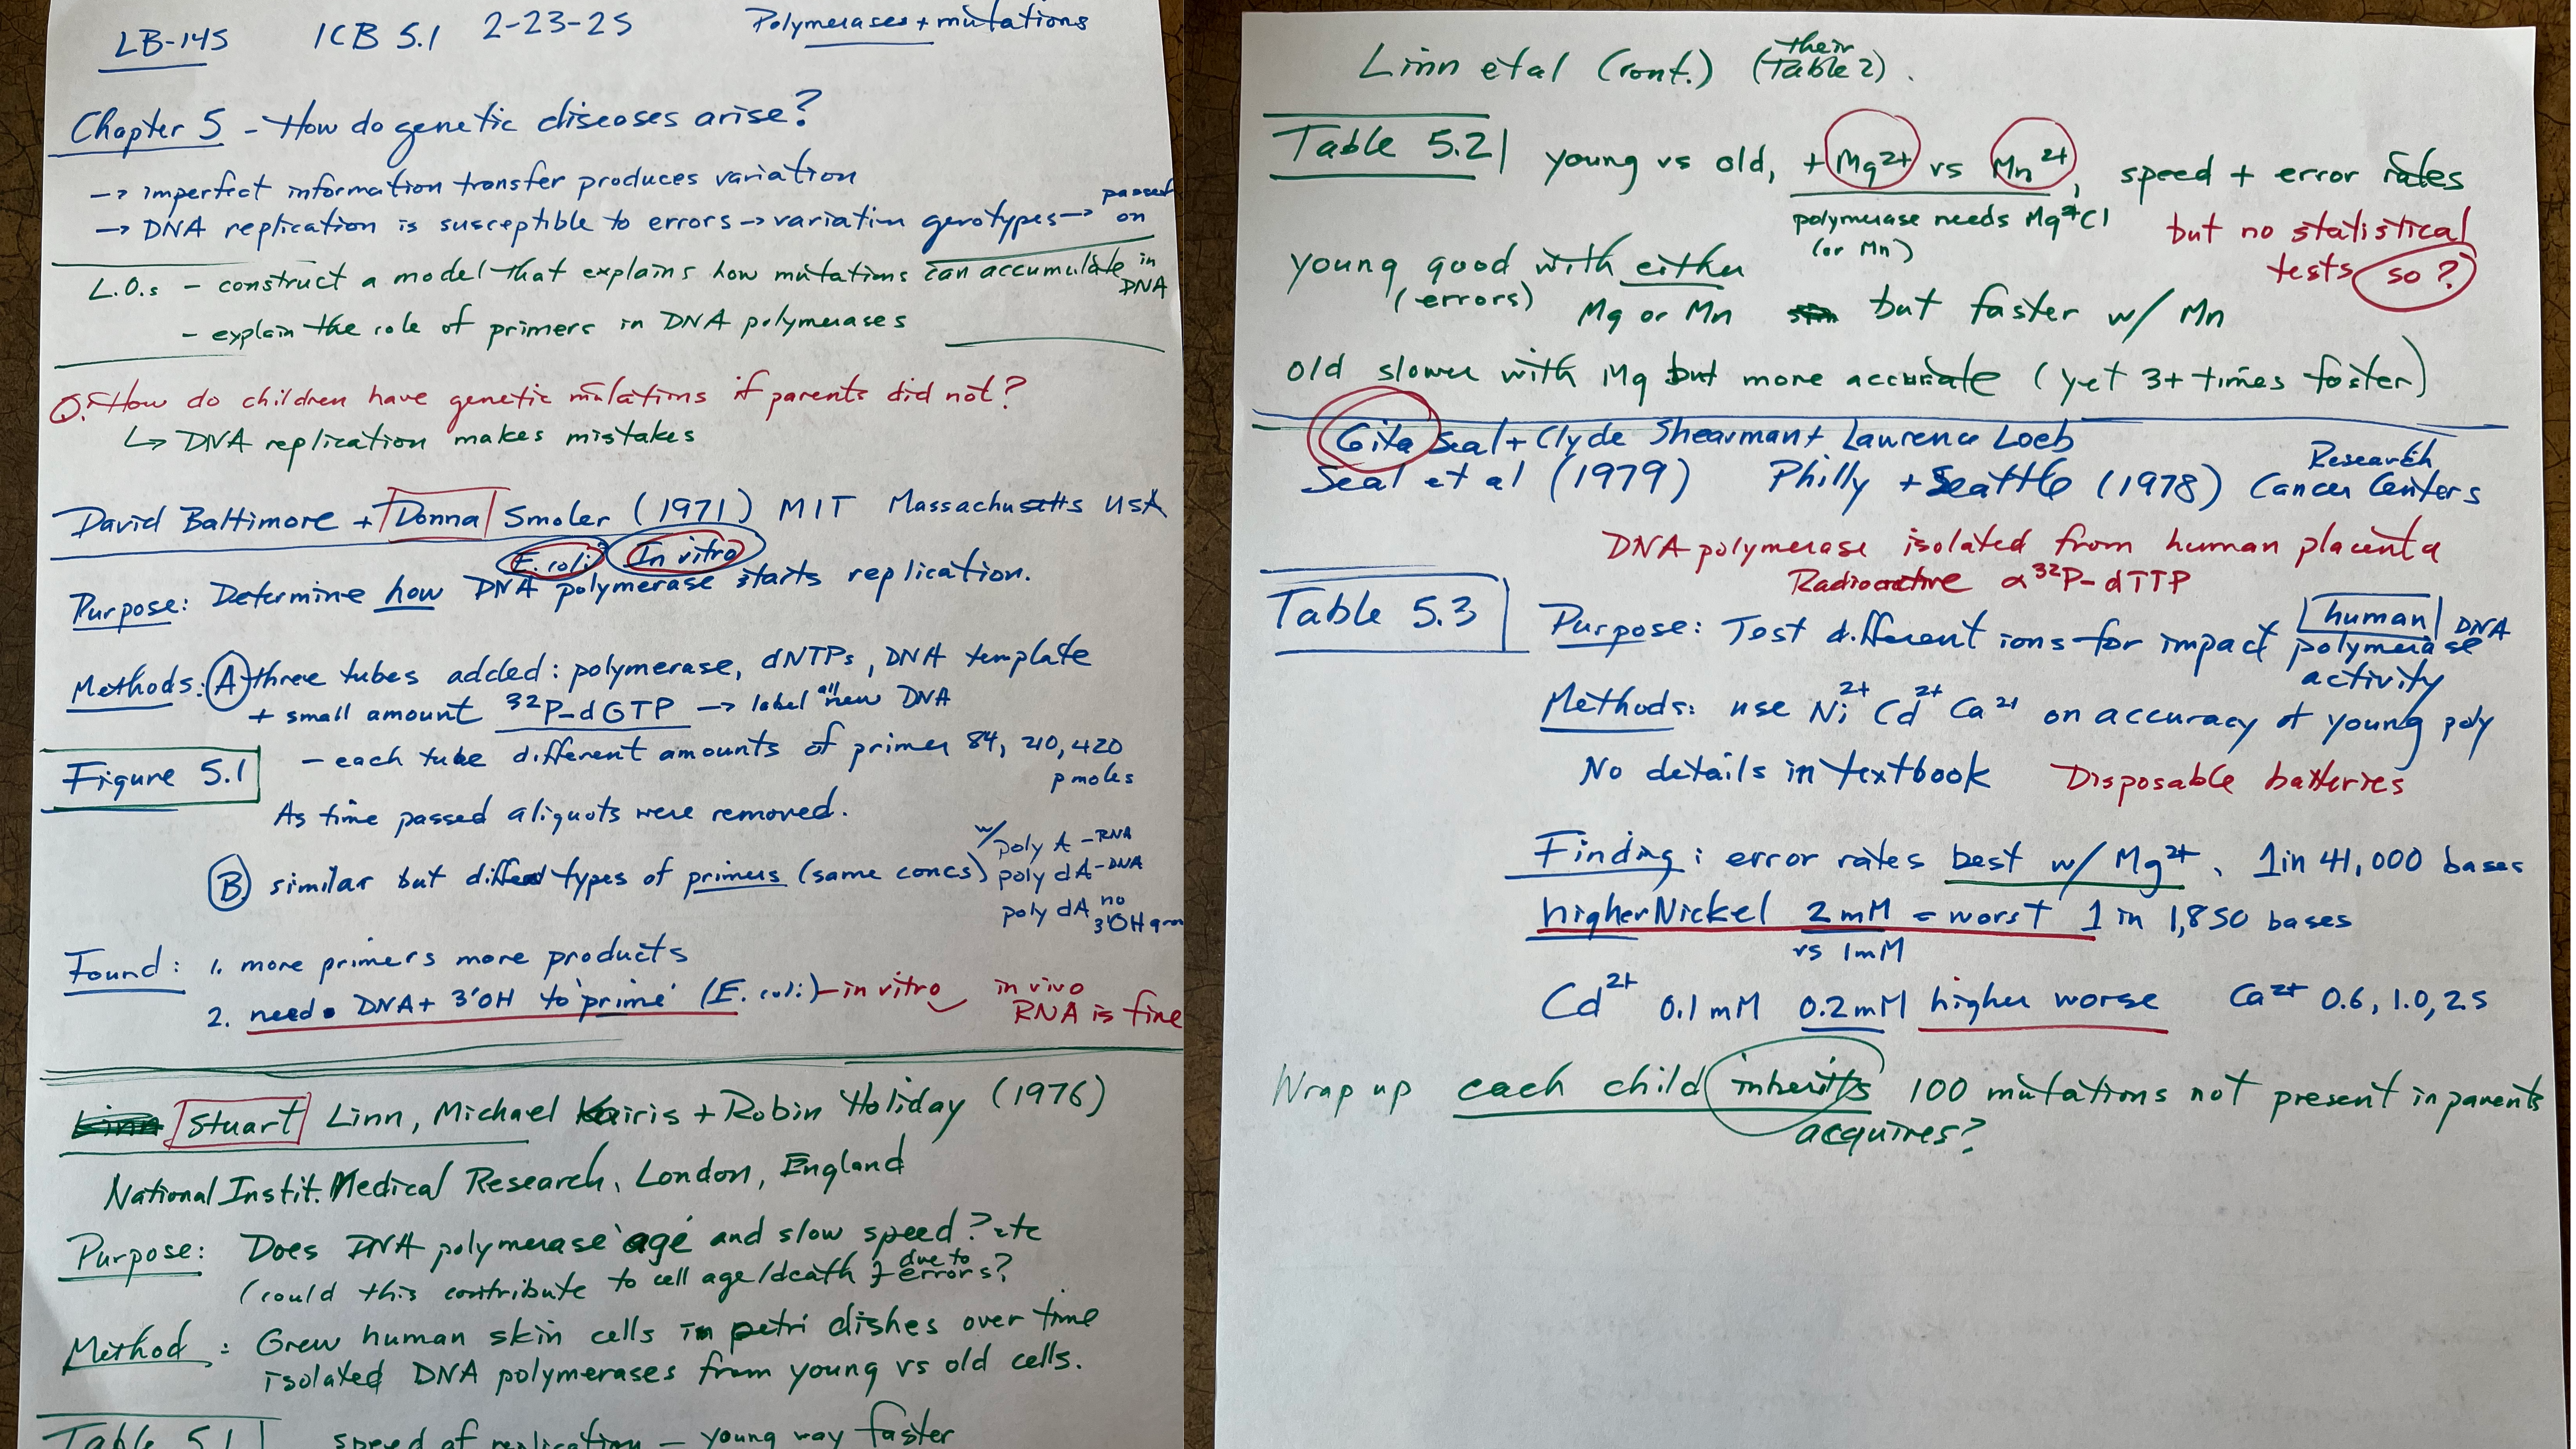 LB-145 ICB 5.1 2-23-25 Polymerases + mutations
Chapter 5 - How do genetic diseases arise?
→ imperfect information transfer produces variation
→ DNA replication is susceptible to errors → variation genotypes → passed on
L.O.s - construct a model that explains how mutations can accumulate in DNA
- explain the role of primers in DNA polymerases
Q: How do children have genetic mutations if parents did not?
↳ DNA replication makes mistakes
David Baltimore + Donna Smoler (1971) MIT Massachusetts USA
E. coli In vitro
Purpose: Determine how DNA polymerase starts replication.
Methods: A three tubes added: polymerase, dNTPs, DNA template
+ small amount 32P-dGTP → label all new DNA
Figure 5.1
- each tube different amounts of primer 84, 210, 420
pmoles
As time passed aliquots were removed.
B similar but different types of primers (same concs) w/ poly A - RNA
poly dA - DNA
poly dA no 3'OH
Found: 1. more primers more products
2. need DNA + 3'OH to 'prime' (E. coli) - in vitro in vivo
RNA is fine
Stuart Linn, Michael Kairis + Robin Holiday (1976)
National Instit. Medical Research, London, England
Purpose: Does DNA polymerase 'age' and slow speed? etc
(could this contribute to cell age/death due to errors?
Method: Grew human skin cells in petri dishes over time
isolated DNA polymerases from young vs old cells.
Table 5.1 speed of replication - young way faster
Linn et al (cont.) (their Table 2).
Table 5.2 young vs old, + Mg2+ vs Mn2+, speed + error rates
polymerase needs Mg2+Cl
(or Mn)
but no statistical
tests so?
young good with either
(errors) Mg or Mn but faster w/ Mn
old slower with Mg but more accurate (yet 3+ times faster)
Gita Seal + Clyde Shearman + Lawrence Loeb
Seal et al (1979) Philly + Seattle (1978) Research Cancer Centers
DNA polymerase isolated from human placenta
Radioactive α32P-dTTP
Table 5.3 Purpose: Test different ions for impact human DNA polymerase
activity
Methods: use Ni2+ Cd2+ Ca2+ on accuracy of young poly
No details in textbook Disposable batteries
Finding: error rates best w/ Mg2+, 1 in 41,000 bases
higher Nickel 2mM = worst 1 in 1,850 bases
vs 1mM
Cd2+ 0.1mM 0.2mM higher worse Ca2+ 0.6, 1.0, 25
Wrap up each child inherits 100 mutations not present in parents
acquires?